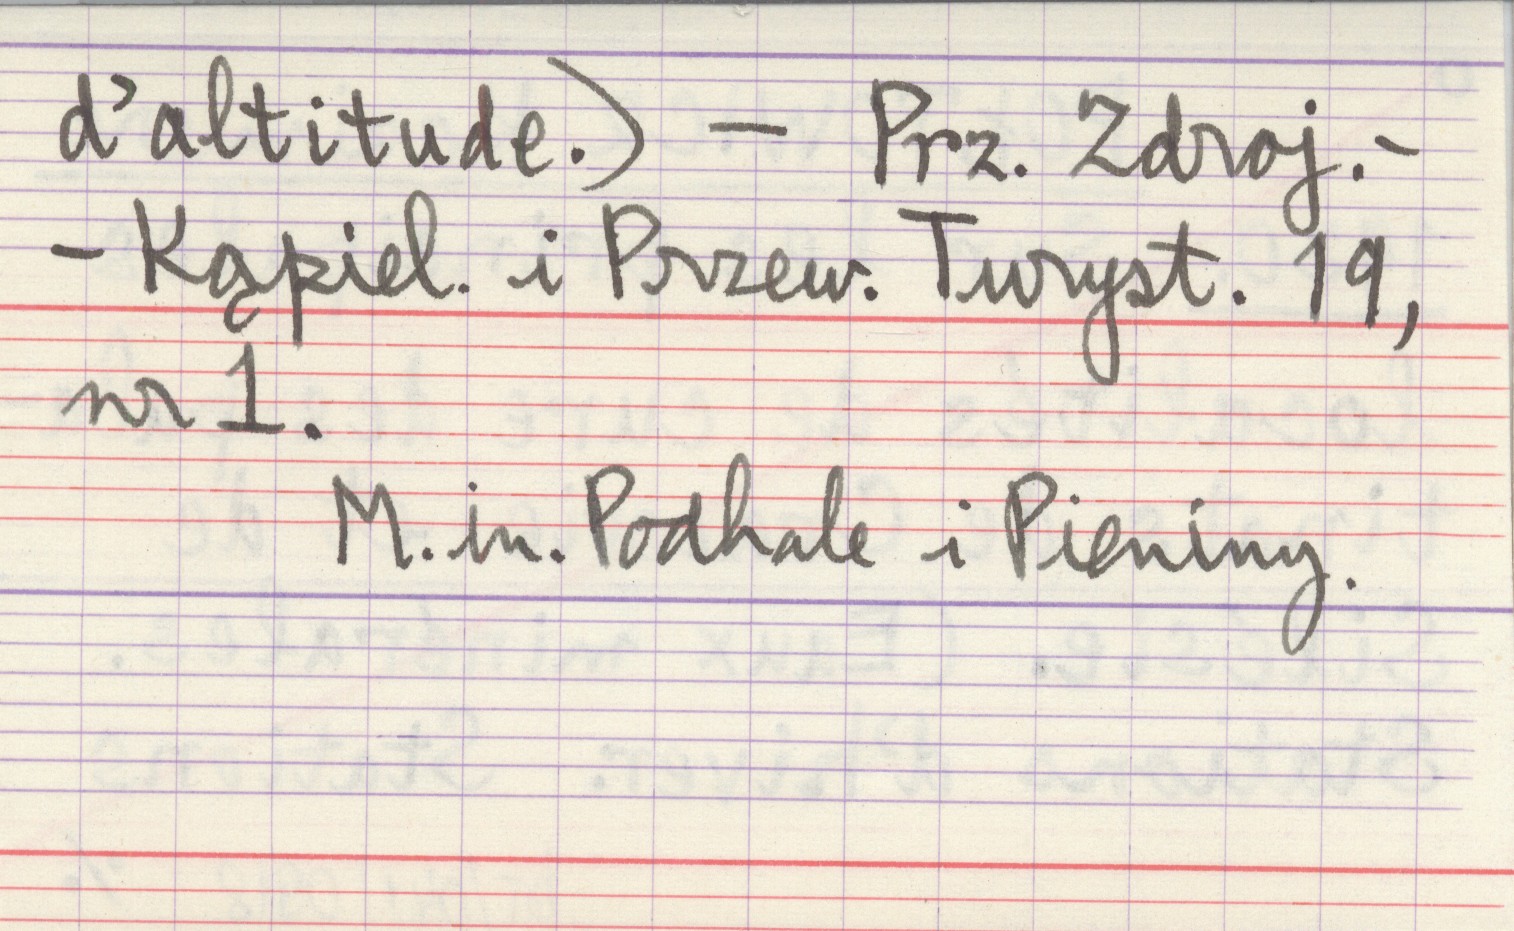 d'altitude.) — Prz. Zdroj.-
- Kąpiel. i Przew. Turyst. 19,
nr 1.
M. in. Podhale i Pieniny.